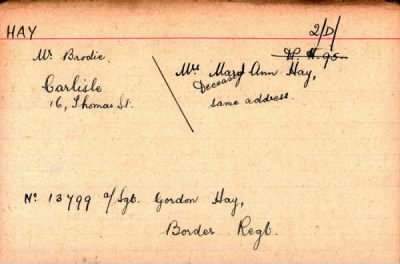 HAY
2/D/
W. H. 95
Mr Brodie.
Mrs Mary Ann Hay,
Deceased
Carlisle
16, Thomas St.
same address.
No 13799 a/Sgt. Gordon Hay,
Border Regt.